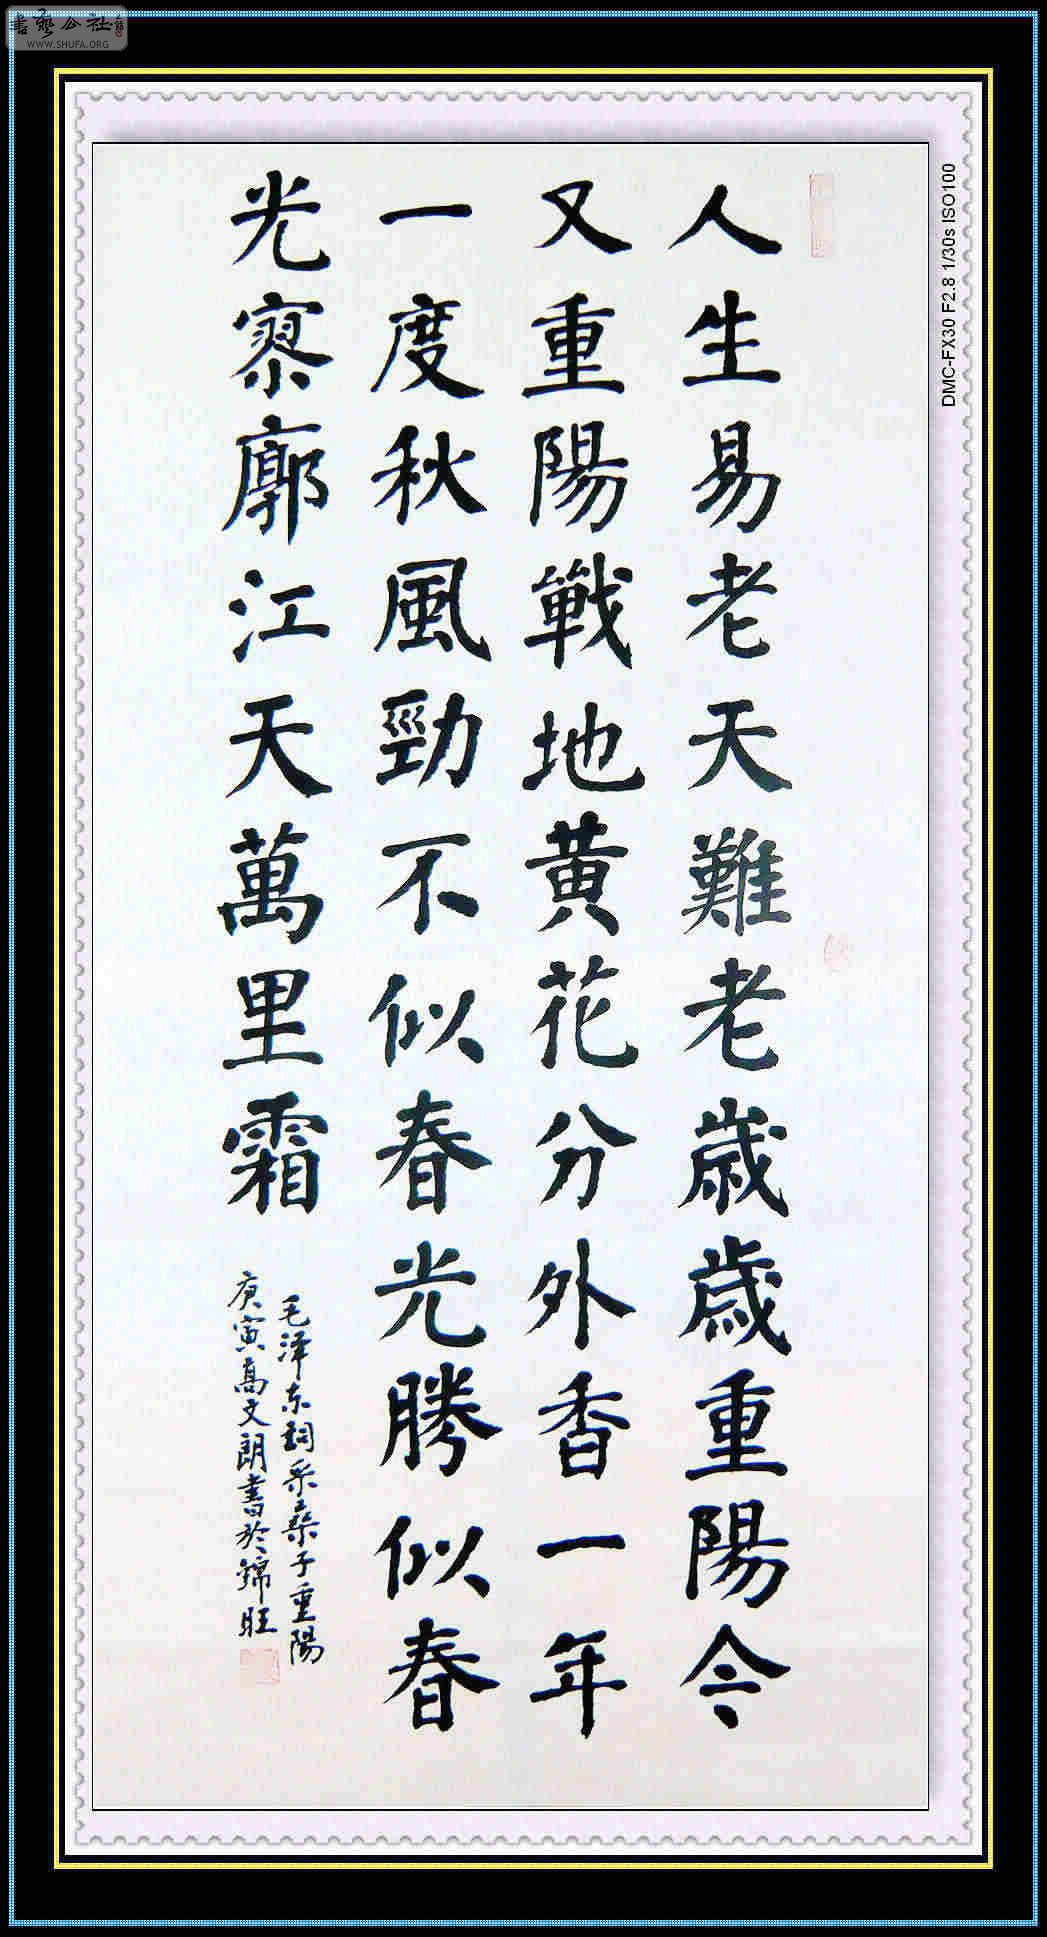 人生易老天難老歲歲重陽今
又重陽戰地黄花分外香一年
一度秋風勁不似春光勝似春
光寥廓江天萬里霜
毛泽东詞采桑子重陽
庚寅高文朗書於錦旺
書藝公社
WWW.SHUFA.ORG
DMC-FX30 F2.8 1/30s ISO100